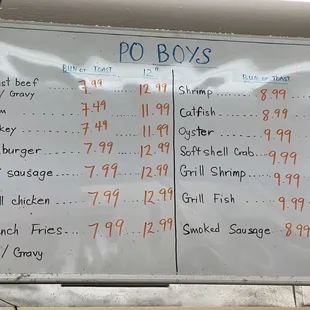 PO BOYS
BUN or TOAST 12"
st beef ........ 7.99 12.99
/ Gravy
m ........ 7.49 11.99
key ....... 7.49 11.99
burger ....... 7.99 12.99
sausage .... 7.99 12.99
ll chicken .... 7.99 12.99
nch Fries... 7.99 12.99
/ Gravy
BUN or TOAST
Shrimp ........ 8.99
Catfish ........ 8.99
Oyster ........ 9.99
Soft shell Crab... 9.99
Grill Shrimp ..... 9.99
Grill Fish ..... 9.99
Smoked Sausage .. 8.99